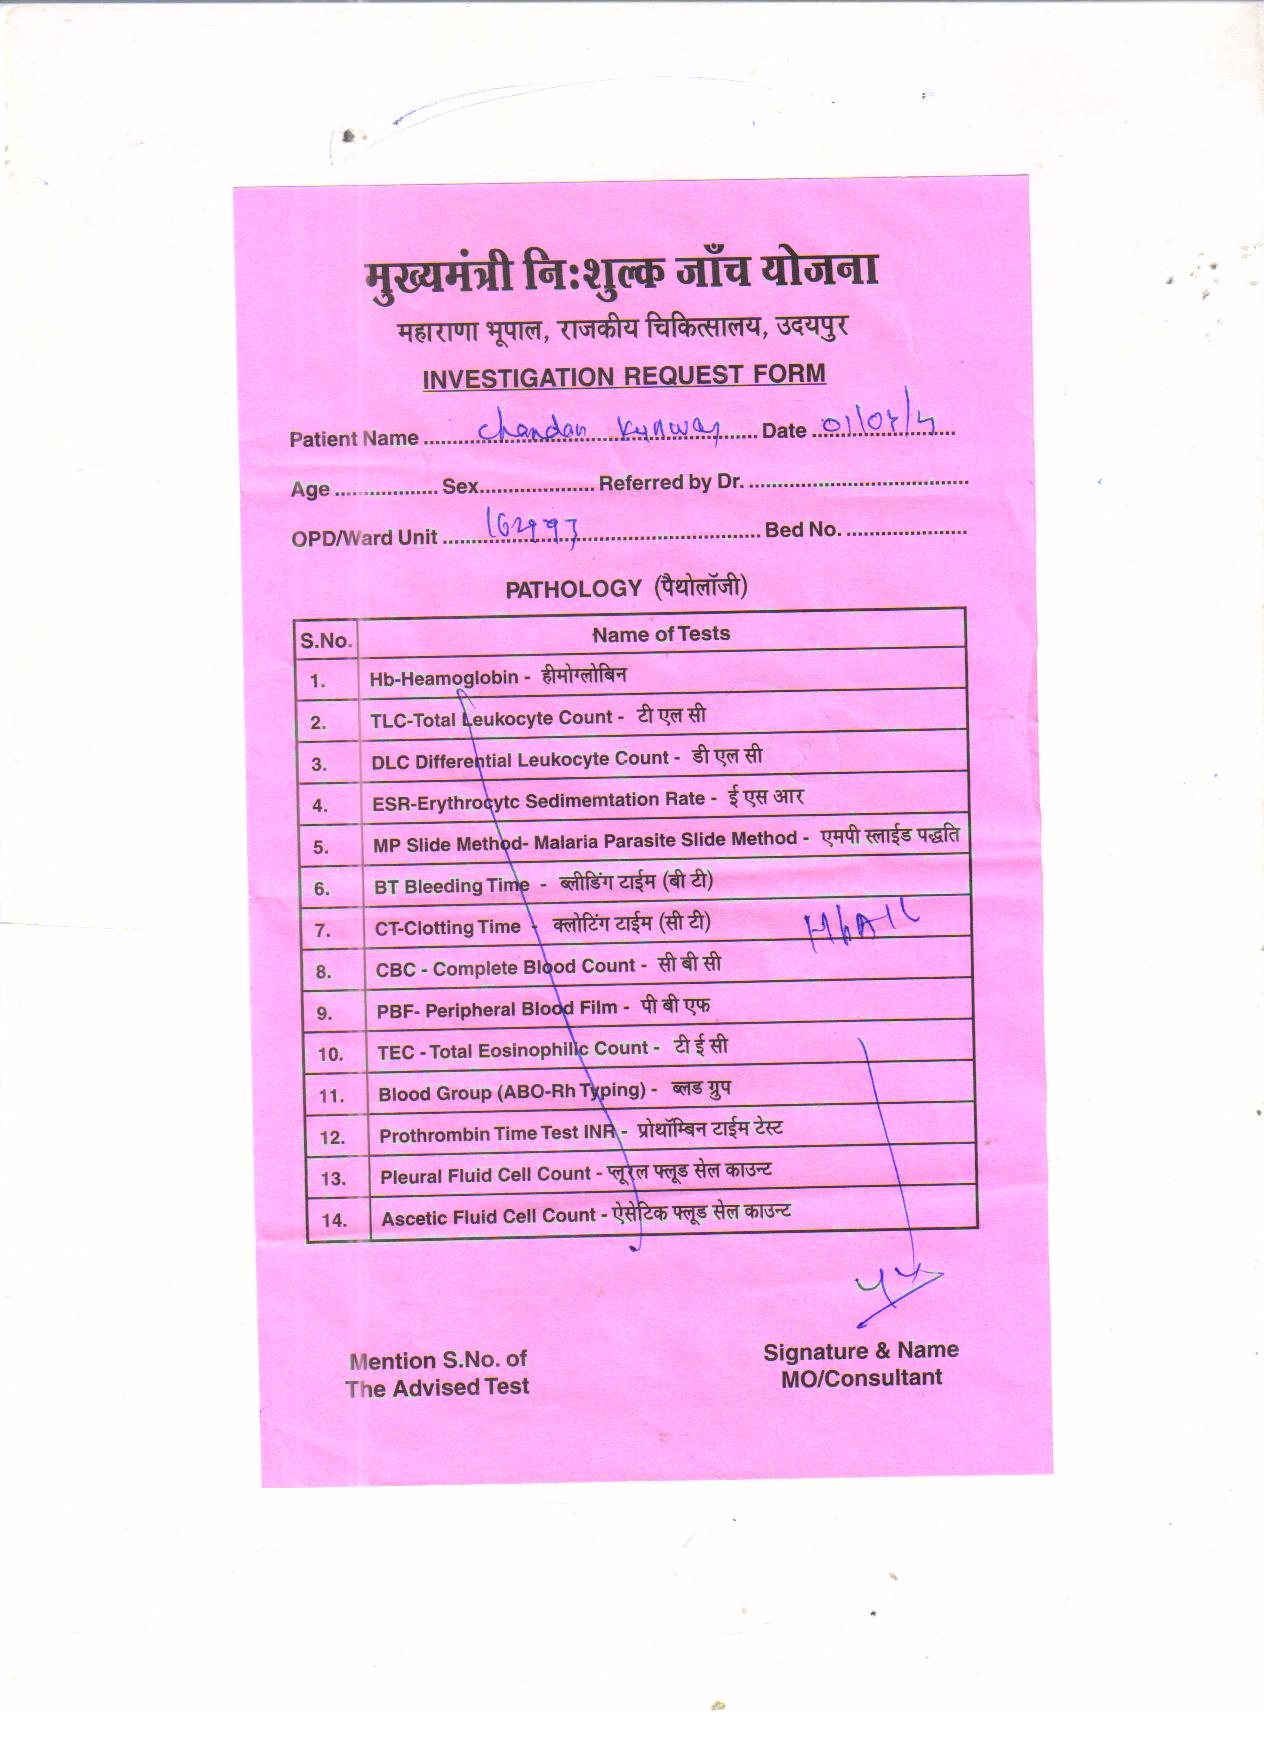 मुख्यमंत्री निःशुल्क जाँच योजना
महाराणा भूपाल, राजकीय चिकित्सालय, उदयपुर
INVESTIGATION REQUEST FORM
Patient Name ........ Chandan Kunwar ........ Date ........
Age .................. Sex.................... Referred by Dr. ......................................
OPD/Ward Unit ........ Bed No. .....................
PATHOLOGY (पैथोलॉजी)
S.No. Name of Tests
1. Hb-Heamoglobin - हीमोग्लोबिन
2. TLC-Total Leukocyte Count - टी एल सी
3. DLC Differential Leukocyte Count - डी एल सी
4. ESR-Erythrocytc Sedimemtation Rate - ई एस आर
5. MP Slide Method- Malaria Parasite Slide Method - एमपी स्लाईड पद्धति
6. BT Bleeding Time - ब्लीडिंग टाईम (बी टी)
7. CT-Clotting Time - क्लोटिंग टाईम (सी टी) HbA1C
8. CBC - Complete Blood Count - सी बी सी
9. PBF- Peripheral Blood Film - पी बी एफ
10. TEC - Total Eosinophilic Count - टी ई सी
11. Blood Group (ABO-Rh Typing) - ब्लड ग्रुप
12. Prothrombin Time Test INR - प्रोथॉम्बिन टाईम टेस्ट
13. Pleural Fluid Cell Count - प्लूरल फ्लूड सेल काउन्ट
14. Ascetic Fluid Cell Count - ऐसेटिक फ्लूड सेल काउन्ट
Mention S.No. of
The Advised Test
Signature & Name
MO/Consultant